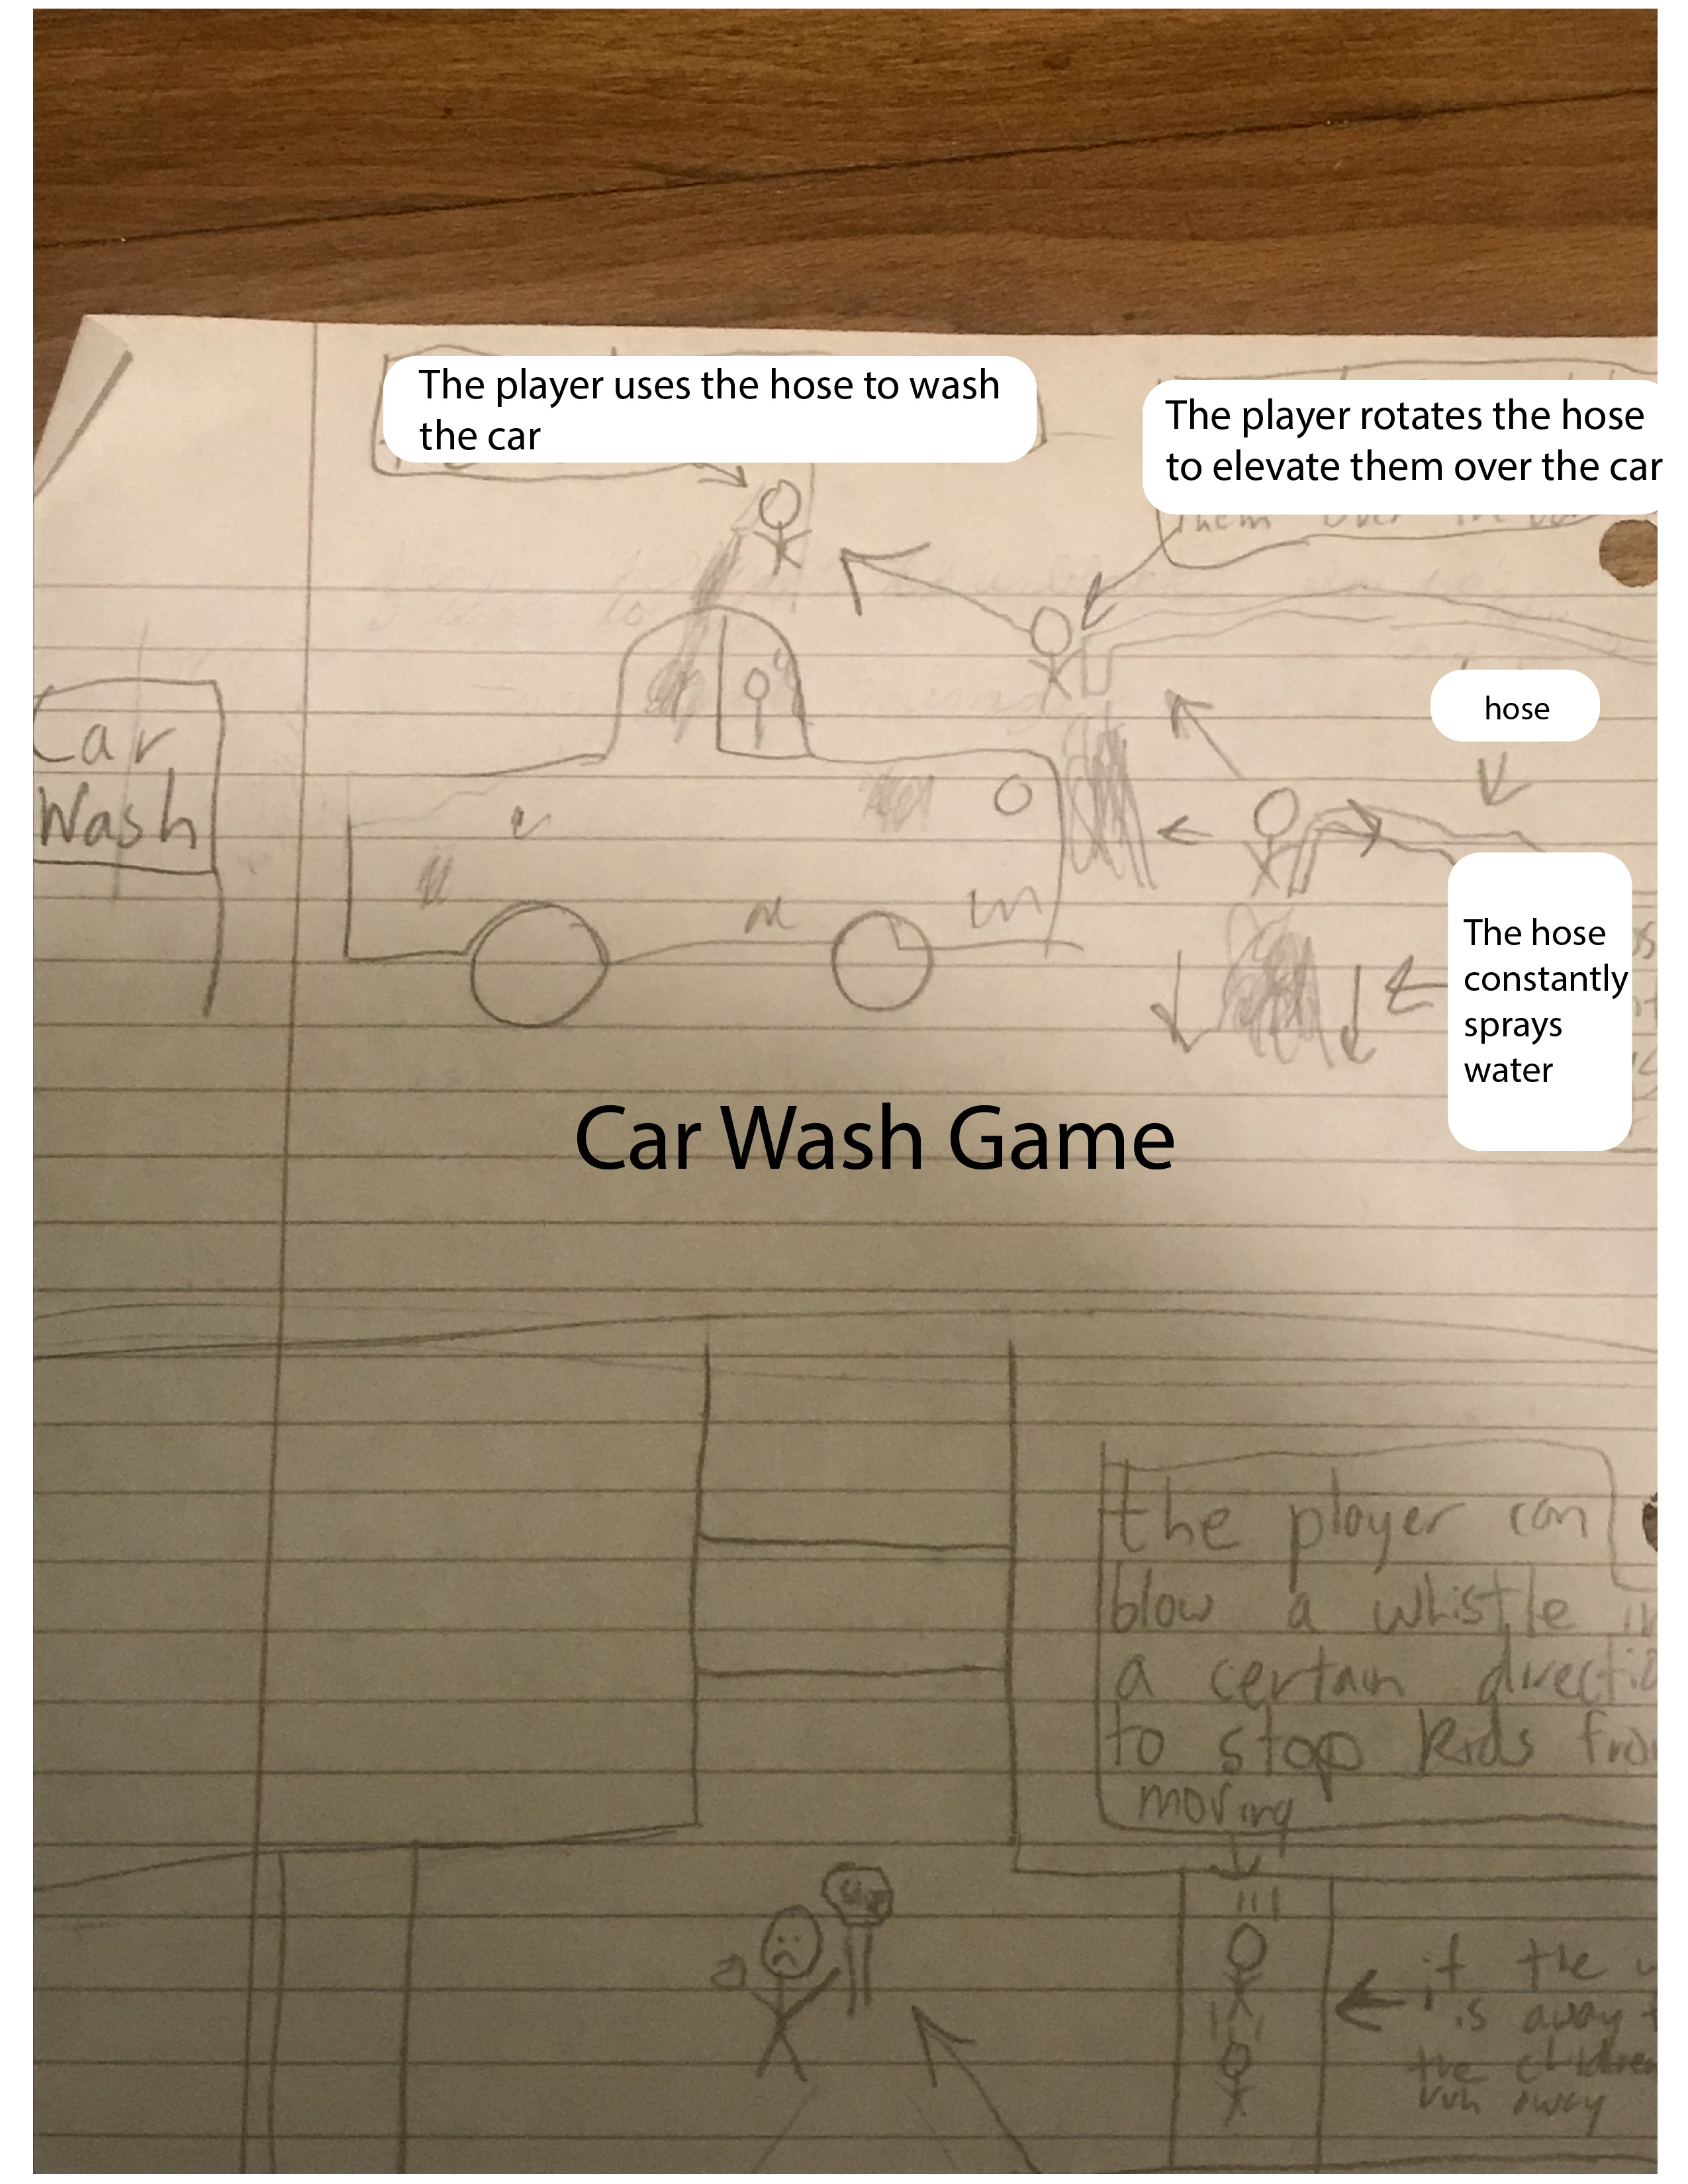 The player uses the hose to wash
the car
The player rotates the hose
to elevate them over the car
them over
hose
Car
Wash
The hose
constantly
sprays
water
Car Wash Game
the player can
blow a whistle in
a certain directio
to stop kids fro
moving
if the
is away
the children
run away